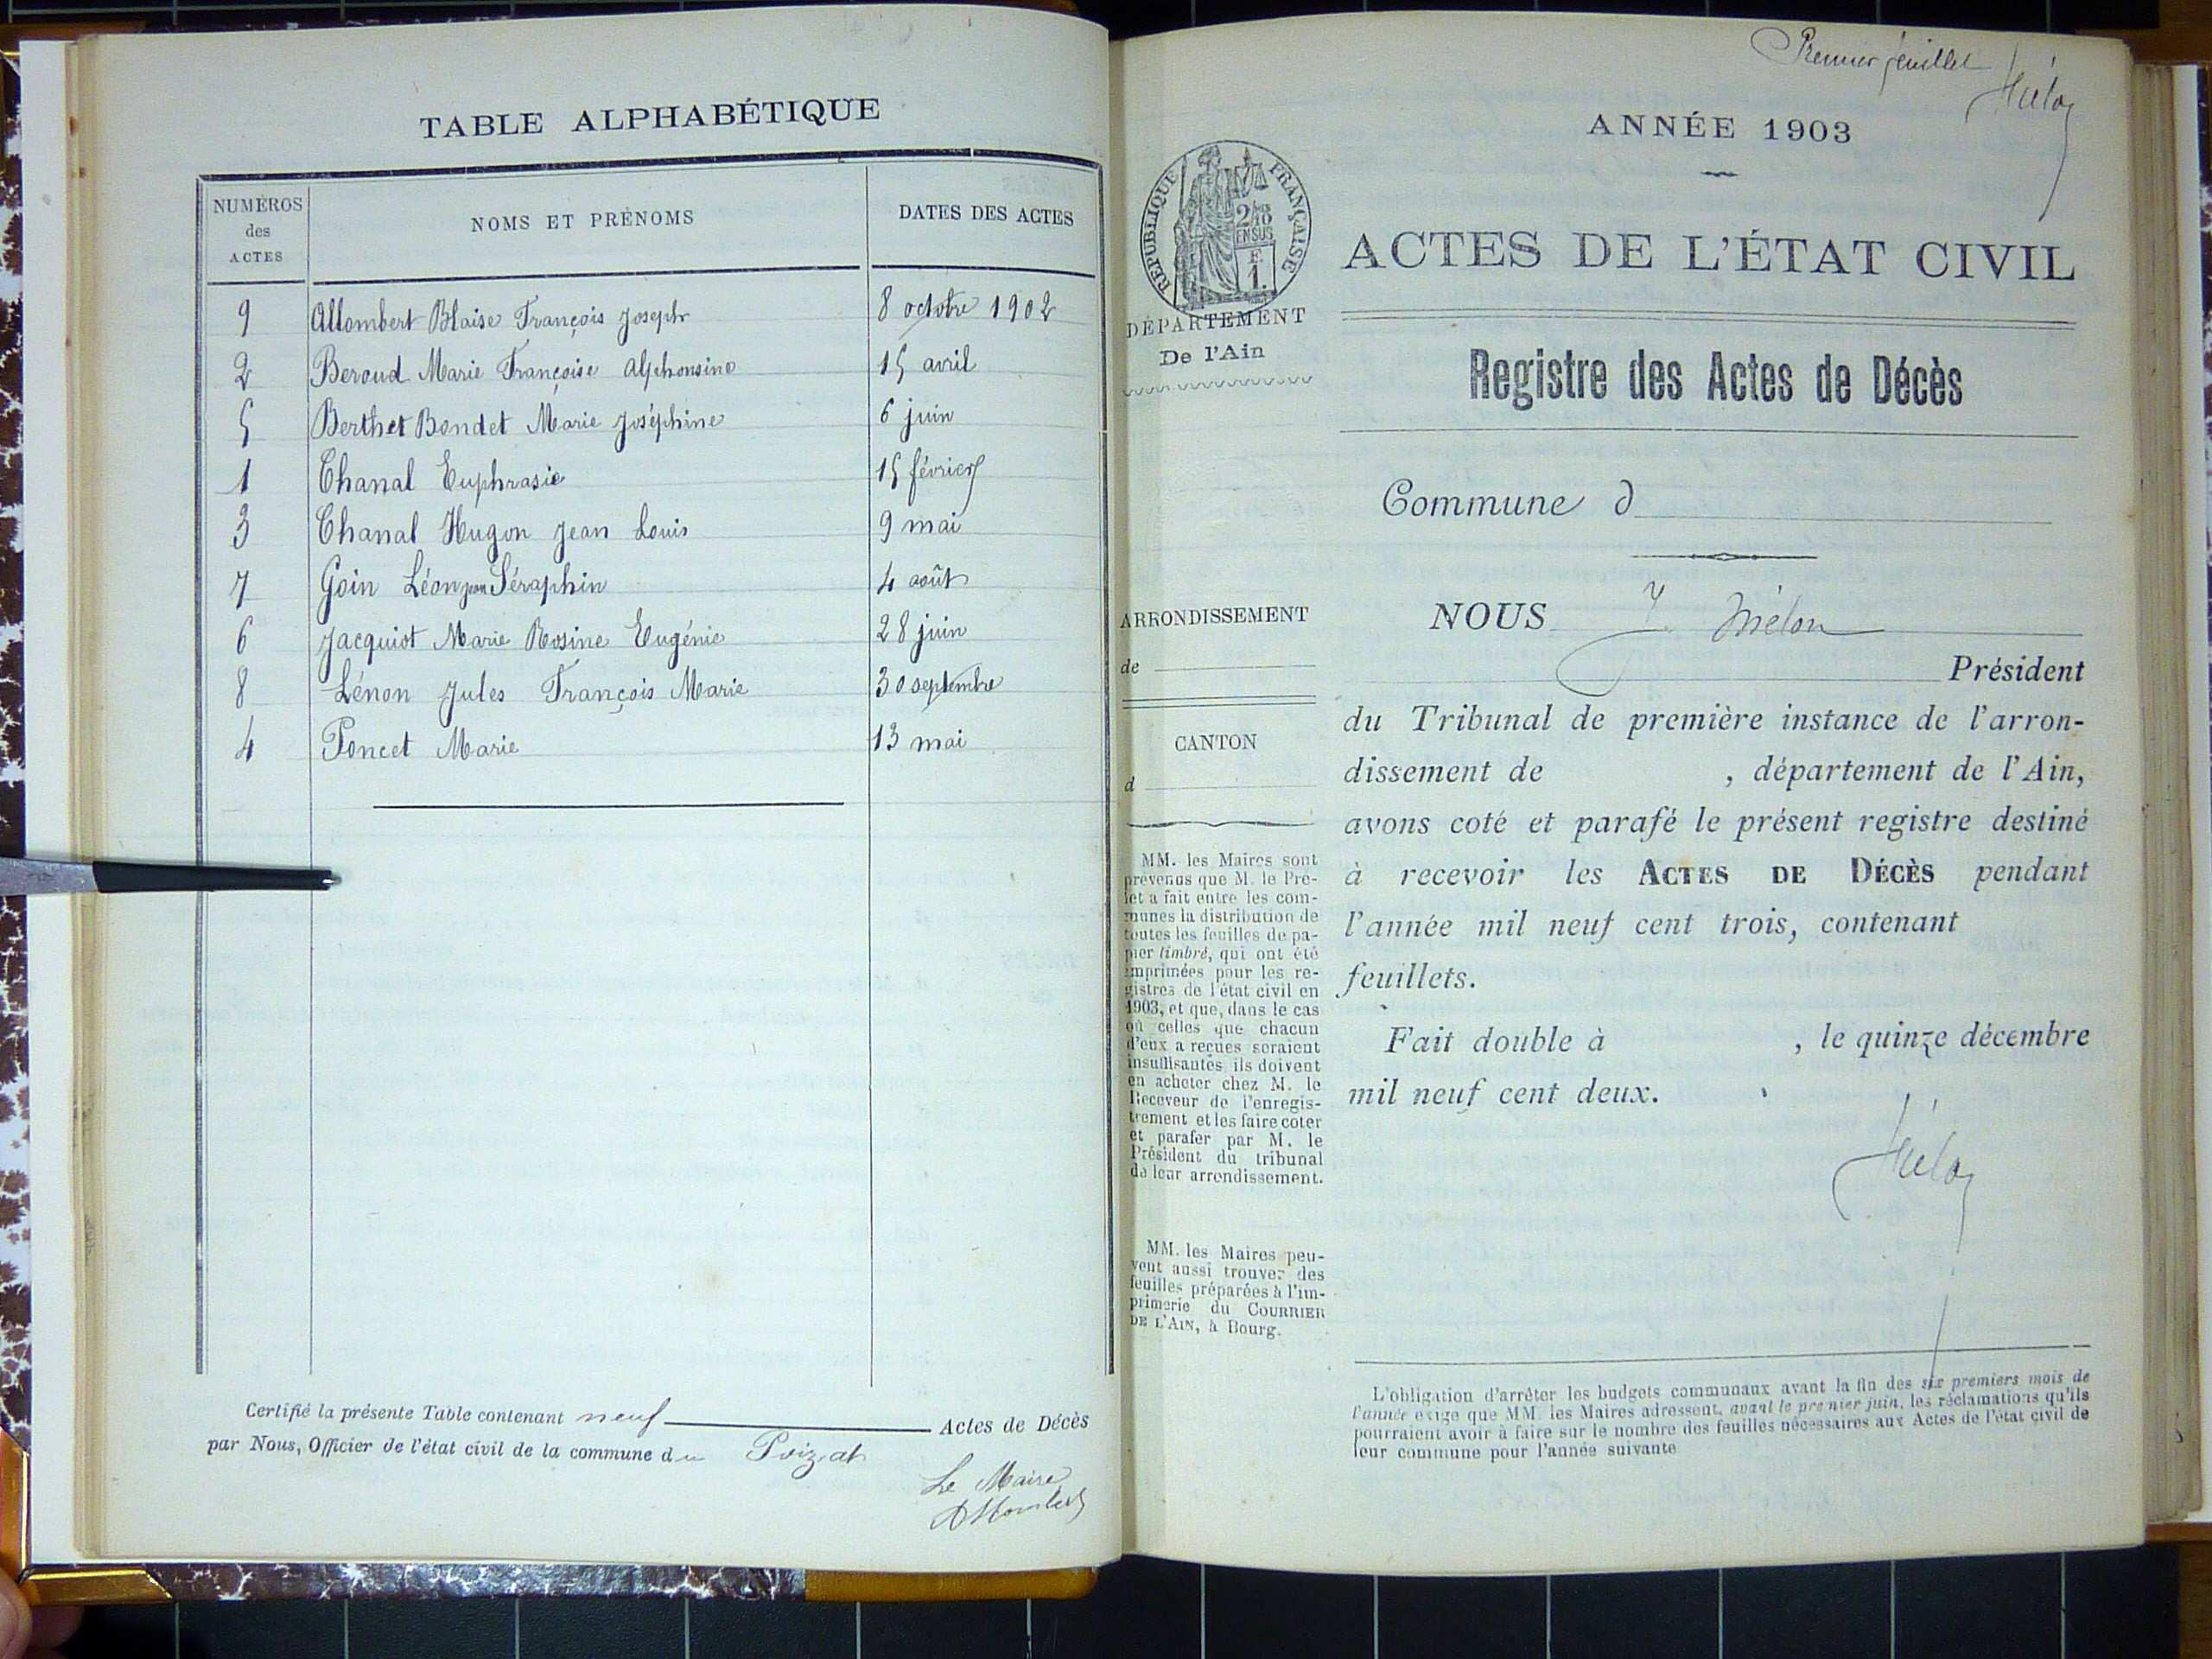 TABLE ALPHABÉTIQUE
NUMÉROS
des
ACTES
NOMS ET PRÉNOMS
DATES DES ACTES
9 Allombert Blaise François Joseph 8 octobre 1902
2 Beroud Marie Françoise Alphonsine 15 avril
5 Berthet Bondet Marie Joséphine 6 juin
1 Chanal Euphrasie 15 février
3 Chanal Hugon Jean Louis 9 mai
7 Goin Léon Jean Séraphin 4 août
6 Jacquiot Marie Rosine Eugénie 28 juin
8 Lénon Jules François Marie 30 septembre
4 Poncet Marie 13 mai
Certifié la présente Table contenant neuf Actes de Décès
par Nous, Officier de l'état civil de la commune du Poizat
Le Maire
Allombert
Premier feuillet
ANNÉE 1903
RÉPUBLIQUE FRANÇAISE
ACTES DE L'ÉTAT CIVIL
DÉPARTEMENT
De l'Ain
Registre des Actes de Décès
Commune d
ARRONDISSEMENT
de
CANTON
d
MM. les Maires sont
prévenus que M. le Pré-
fet a fait entre les com-
munes la distribution de
toutes les feuilles de pa-
pier timbré, qui ont été
imprimées pour les re-
gistres de l'état civil en
1903, et que, dans le cas
où celles que chacun
d'eux a reçues seraient
insuffisantes, ils doivent
en acheter chez M. le
Receveur de l'enregis-
trement et les faire coter
et parafer par M. le
Président du tribunal
de leur arrondissement.
MM. les Maires peu-
vent aussi trouver des
feuilles préparées à l'im-
primerie du COURRIER
DE L'AIN, à Bourg.
NOUS
Président
du Tribunal de première instance de l'arron-
dissement de , département de l'Ain,
avons coté et parafé le présent registre destiné
à recevoir les ACTES DE DÉCÈS pendant
l'année mil neuf cent trois, contenant
feuillets.
Fait double à , le quinze décembre
mil neuf cent deux.
L'obligation d'arrêter les budgets communaux avant la fin des six premiers mois de
l'année exige que MM. les Maires adressent, avant le premier juin, les réclamations qu'ils
pourraient avoir à faire sur le nombre des feuilles nécessaires aux Actes de l'état civil de
leur commune pour l'année suivante